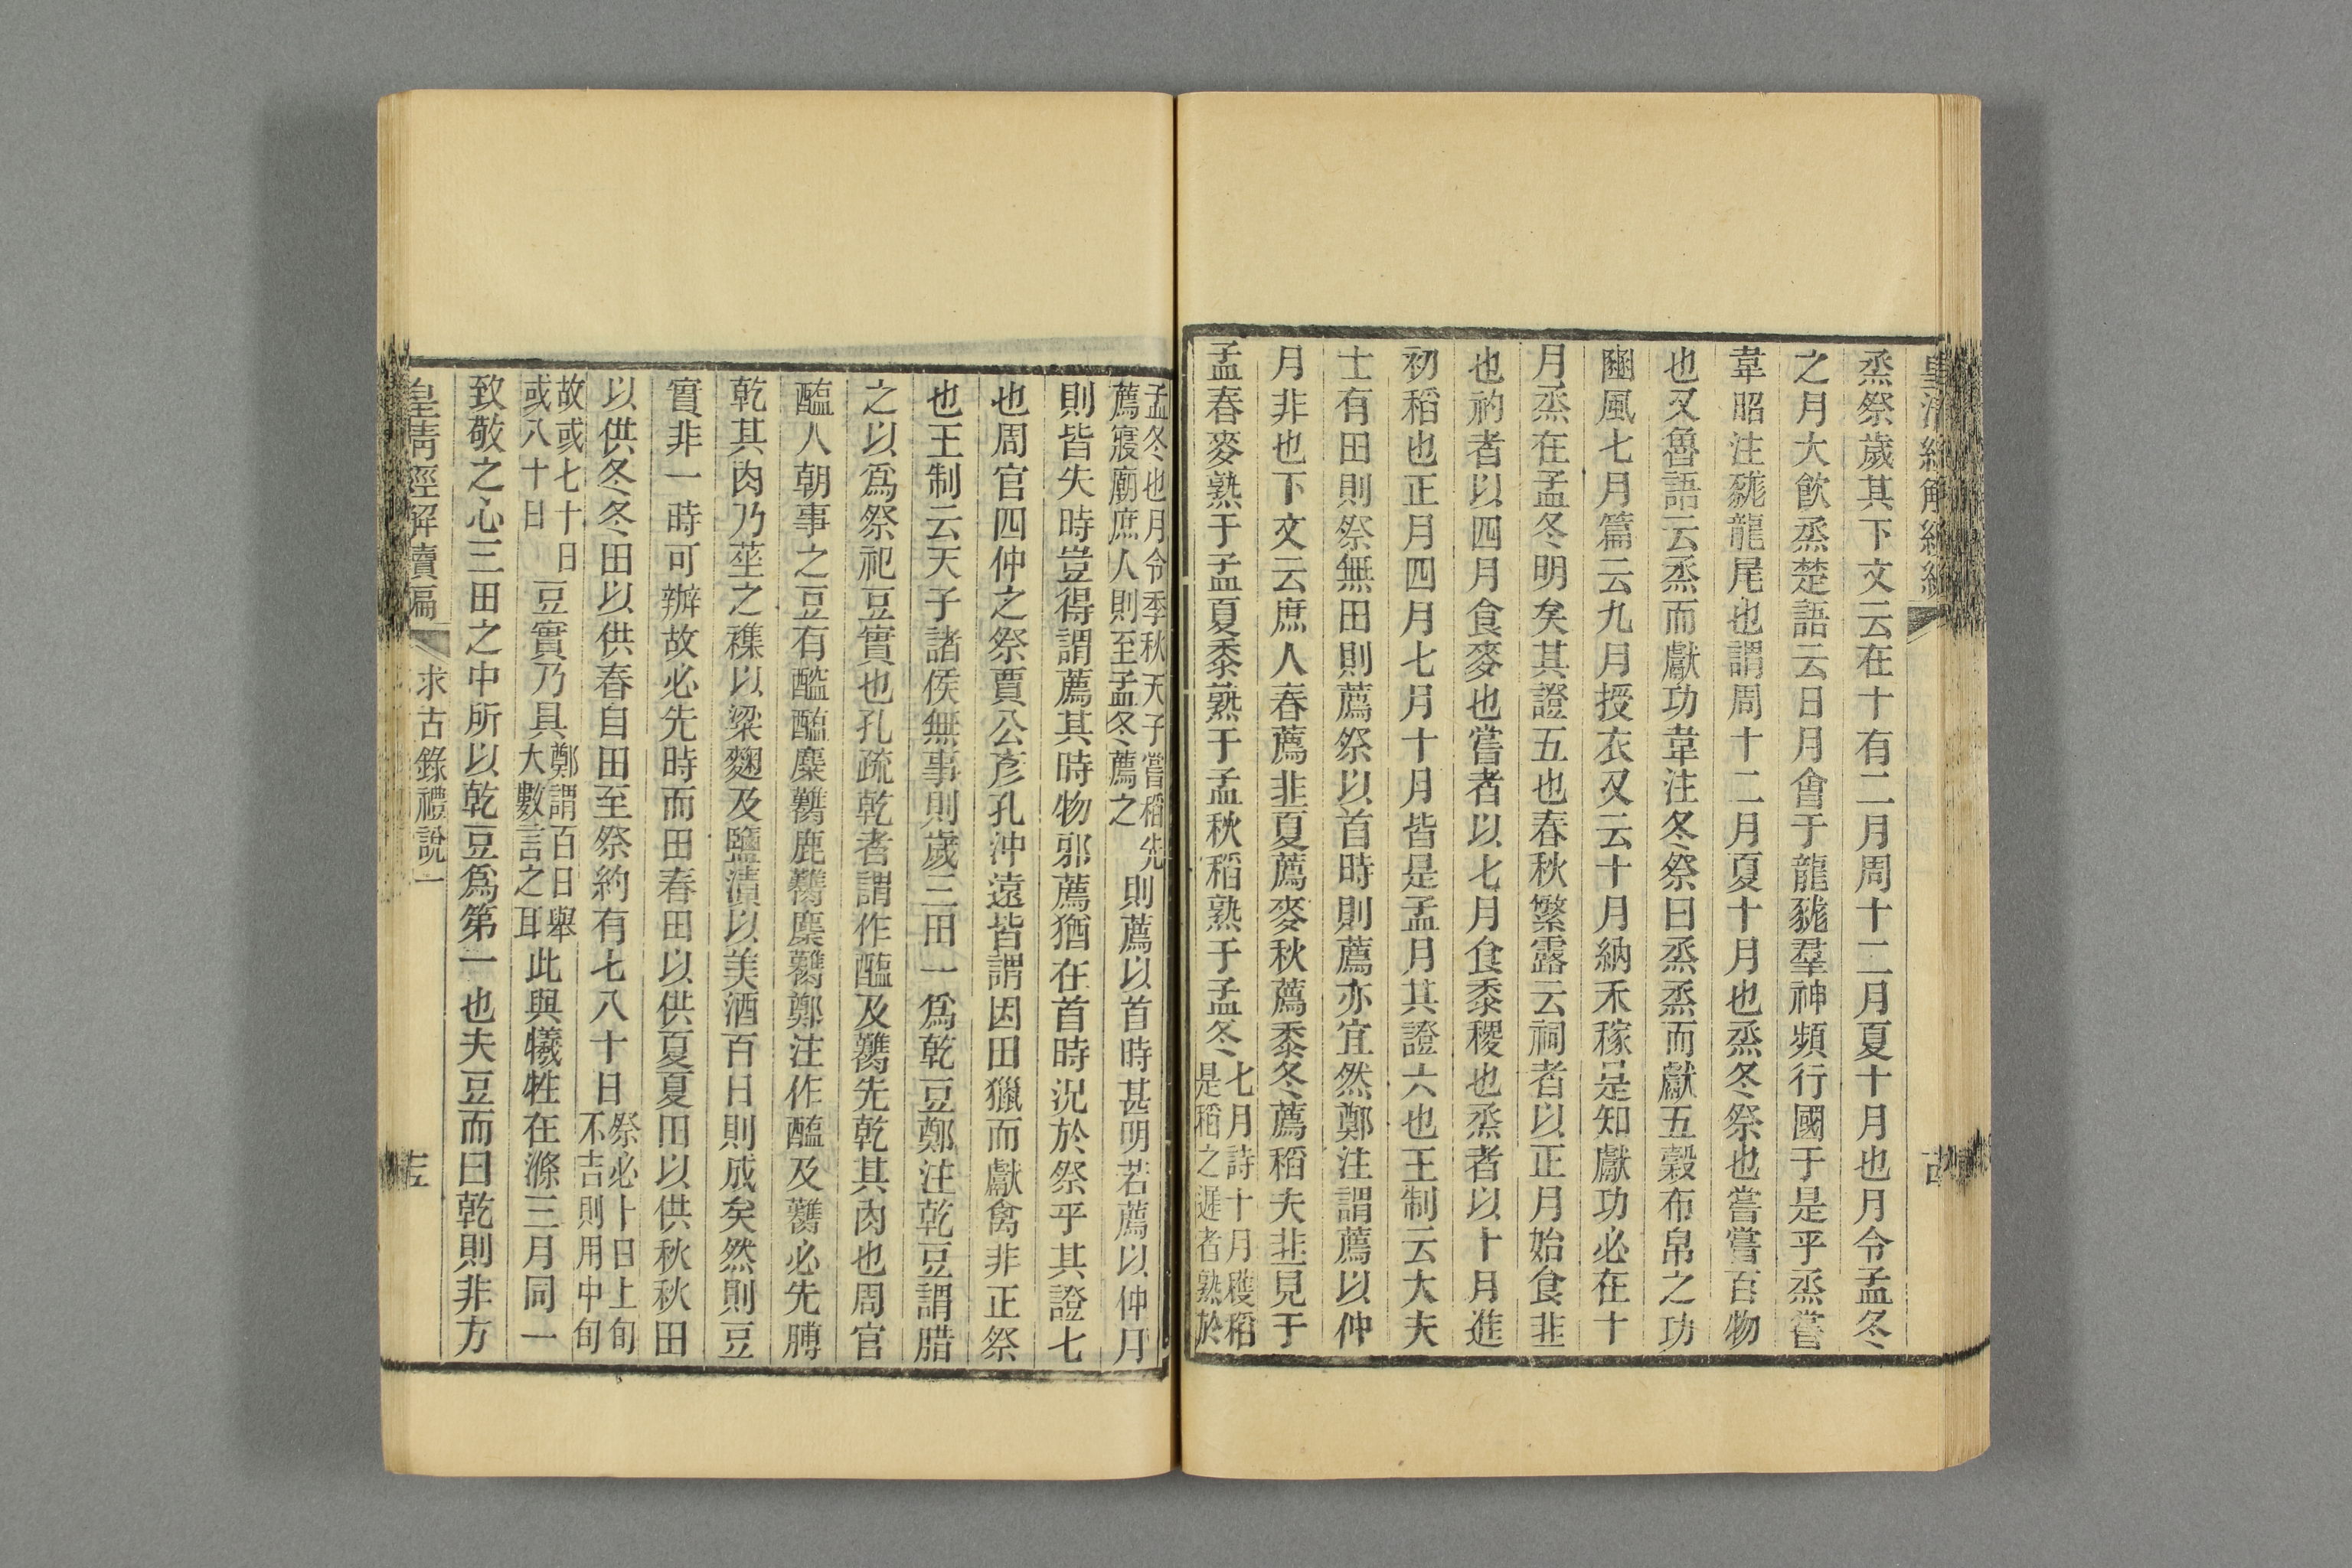 烝祭歲其下文云在十有二月周十二月夏十月也月令孟冬
之月大飲烝楚語云日月會于龍㹸羣神頻行國于是乎烝嘗
韋昭注㹸龍尾也謂周十二月夏十月也烝冬祭也嘗嘗百物
也又魯語云烝而獻功韋注冬祭曰烝烝而獻五穀布帛之功
豳風七月篇云九月授衣又云十月納禾稼是知獻功必在十
月烝在孟冬明矣其證五也春秋繁露云祠者以正月始食韭
也礿者以四月食麥也嘗者以七月食黍稷也烝者以十月進
初稻也正月四月七月十月皆是孟月其證六也王制云大夫
士有田則祭無田則薦祭以首時則薦亦宜然鄭注謂薦以仲
月非也下文云庶人春薦韭夏薦麥秋薦黍冬薦稻夫韭見于
孟春麥熟于孟夏黍熟于孟秋稻熟于孟冬七月詩十月穫稻是稻之遲者熟於
孟冬也月令季秋天子嘗稻先薦寢廟庶人則至孟冬薦之則薦以首時甚明若薦以仲月
則皆失時豈得謂薦其時物邪薦猶在首時況於祭乎其證七
也周官四仲之祭賈公彥孔沖遠皆謂因田獵而獻禽非正祭
也王制云天子諸侯無事則歲三田一爲乾豆鄭注乾豆謂腊
之以爲祭祀豆實也孔疏乾者謂作醢及臡先乾其肉也周官
醢人朝事之豆有醓醢麋臡鹿臡麇臡鄭注作醢及臡必先膊
乾其肉乃莝之襍以粱麴及鹽漬以美酒百日則成矣然則豆
實非一時可辦故必先時而田春田以供夏夏田以供秋秋田
以供冬冬田以供春自田至祭約有七八十日祭必卜日上旬不吉則用中旬
故或七十日或八十日豆實乃具鄭謂百日舉大數言之耳此與犧牲在滌三月同一
致敬之心三田之中所以乾豆爲第一也夫豆而曰乾則非方
皇清經解續編 求古錄禮說一